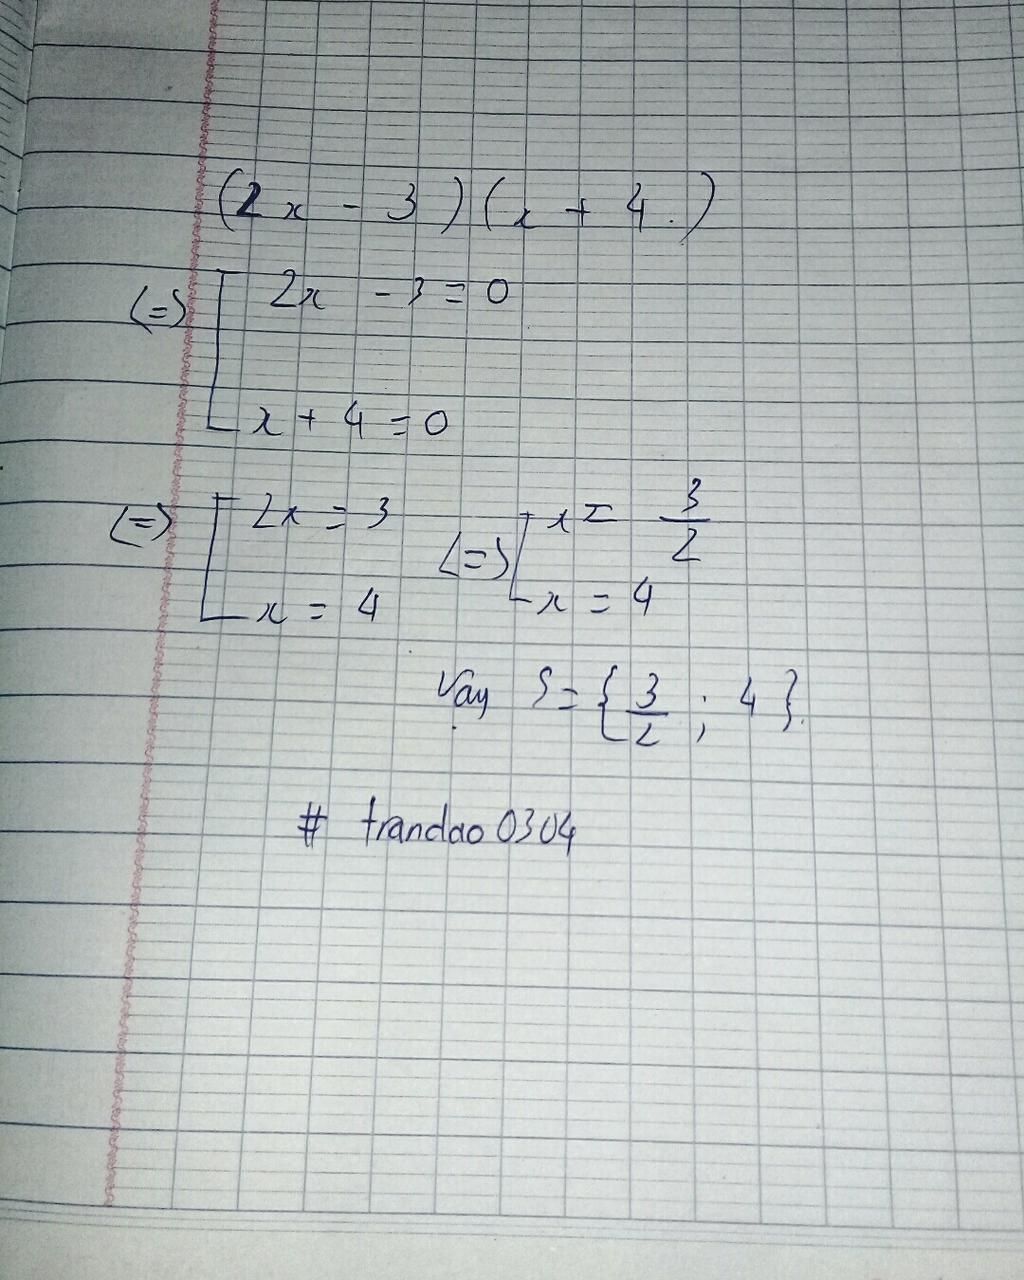 (2x - 3)(x + 4.)
(=) [ 2x - 3 = 0
x + 4 = 0
(=) [ 2x = 3 (=) [ x = 3/2
x = 4 x = 4
Vậy S = { 3/2 ; 4 }.
# trandao 0304